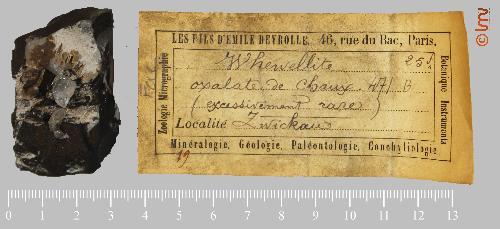 LES FILS D'EMILE DEYROLLE, 46, rue du Bac, Paris.
Whewellite 25 f.
oxalate de chaux 471 B
(excessivement rare)
Localité Zwickau
Minéralogie, Géologie, Paléontologie, Conchyliologie
Zoologie Micrographie
Botanique Instruments
19
0 1 2 3 4 5 6 7 8 9 10 11 12 13